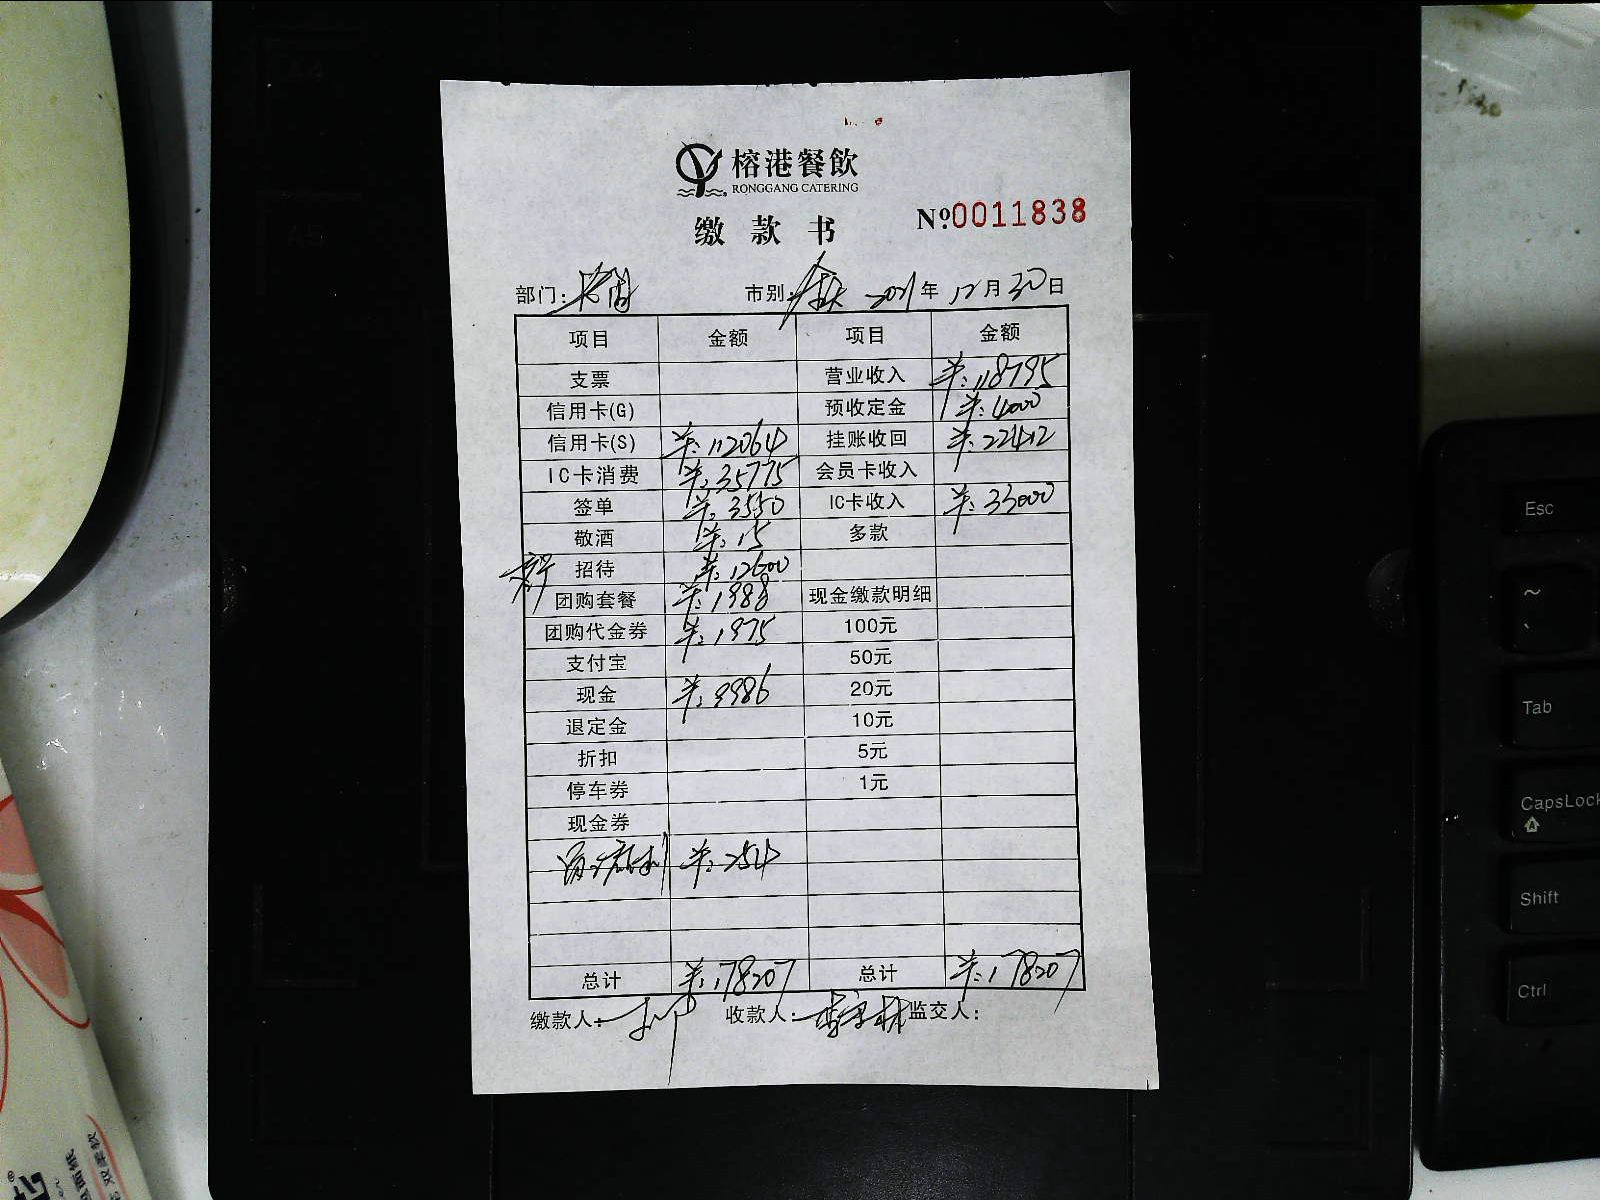 榕港餐飲
RONGGANG CATERING
缴款书
№0011838
部门: 市别: 2021年 12月 30日
项目 金额 项目 金额
支票 营业收入 ¥:118795
信用卡(G) 预收定金 ¥:4000
信用卡(S) ¥:112064 挂账收回 ¥:22412
IC卡消费 ¥:35775 会员卡收入
签单 ¥:3550 IC卡收入 ¥:33000
敬酒 ¥:15 多款
招待 ¥:12600
团购套餐 ¥:1988 现金缴款明细
团购代金券 ¥:1975 100元
支付宝 50元
现金 ¥:9986 20元
退定金 10元
折扣 5元
停车券 1元
现金券
¥:254
总计 ¥:178207 总计 ¥:178207
缴款人: 收款人: 监交人:
Esc
~
Tab
CapsLock
Shift
Ctrl